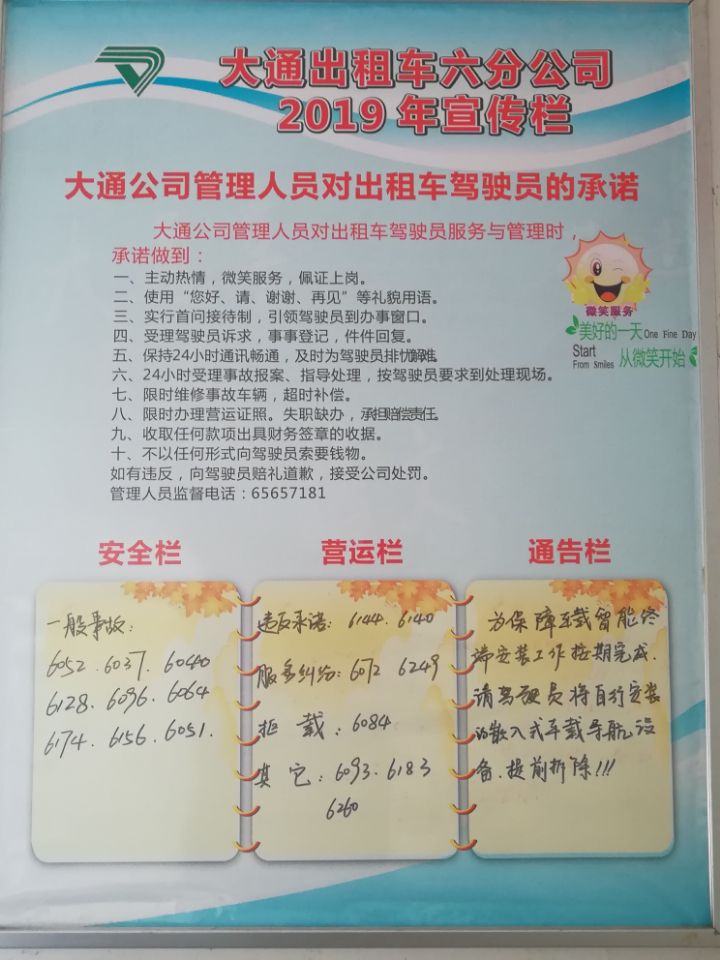 大通出租车六分公司
2019 年宣传栏
大通公司管理人员对出租车驾驶员的承诺
大通公司管理人员对出租车驾驶员服务与管理时，
承诺做到：
一、主动热情，微笑服务，佩证上岗。
二、使用“您好、请、谢谢、再见”等礼貌用语。
三、实行首问接待制，引领驾驶员到办事窗口。
四、受理驾驶员诉求，事事登记，件件回复。
五、保持24小时通讯畅通，及时为驾驶员排忧解难。
六、24小时受理事故报案、指导处理，按驾驶员要求到处理现场。
七、限时维修事故车辆，超时补偿。
八、限时办理营运证照。失职缺办，承担赔偿责任。
九、收取任何款项出具财务签章的收据。
十、不以任何形式向驾驶员索要钱物。
如有违反，向驾驶员赔礼道歉，接受公司处罚。
管理人员监督电话：65657181
微笑服务
美好的一天 One Fine Day
Start
From Smiles 从微笑开始
安全栏
一般事故：
6052．6037．6040
6128．6096．6064
6174．6156．6051．
营运栏
违反承诺：6144．6140
服务纠纷：6072 6249
拒载：6084
其它：6093．6183
6260
通告栏
为保障车载智能终
端安装工作按期完成．
请驾驶员将自行安装
的嵌入式车载导航设
备．提前拆除!!!